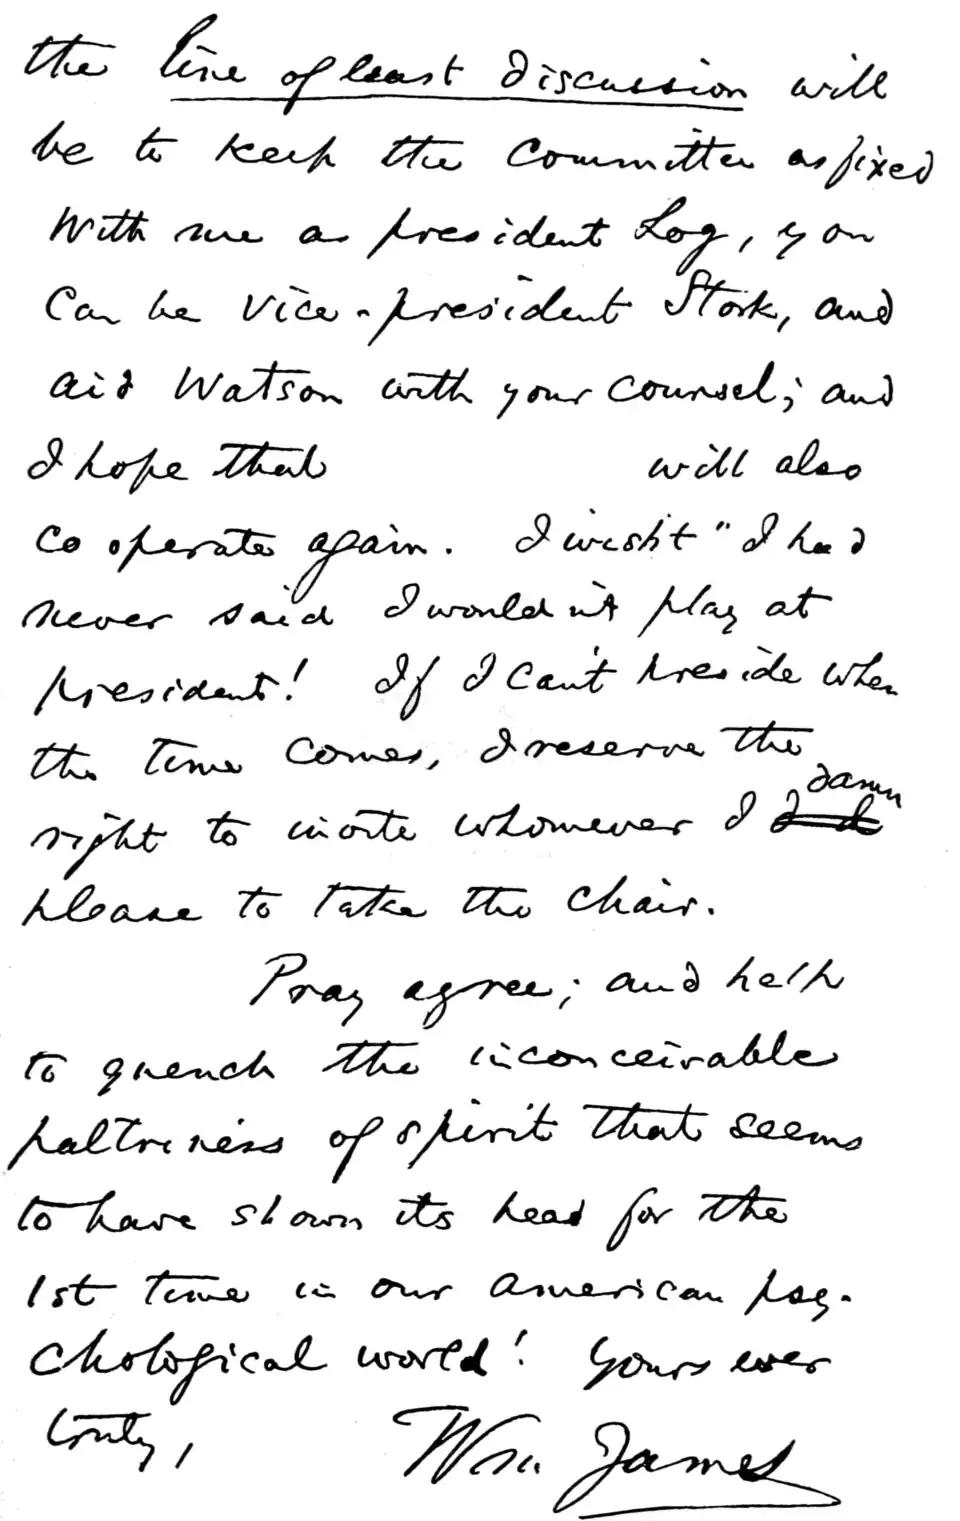 the line of least discussion will
be to keep the Committee as fixed
With me as president Log, you
Can be Vice-president Stork, and
aid Watson with your counsel; and
I hope that will also
cooperate again. I wisht "I had
never said I wouldn't play at
president! If I can't preside when
the time comes, I reserve the
damn
right to invite whomever I
please to take the chair.
Pray agree; and help
to quench the inconceivable
paltriness of spirit that seems
to have shown its head for the
1st time in our American psy-
chological world! Yours ever
truly,
Wm. James